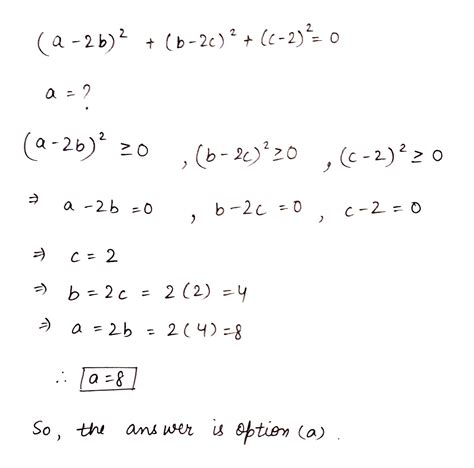 (a-2b)² + (b-2c)² + (c-2)² = 0
a = ?
(a-2b)² ≥ 0 , (b-2c)² ≥ 0 , (c-2)² ≥ 0
⇒ a-2b = 0 , b-2c = 0 , c-2 = 0
⇒ c = 2
⇒ b = 2c = 2(2) = 4
⇒ a = 2b = 2(4) = 8
∴ a=8
So, the answer is option (a).